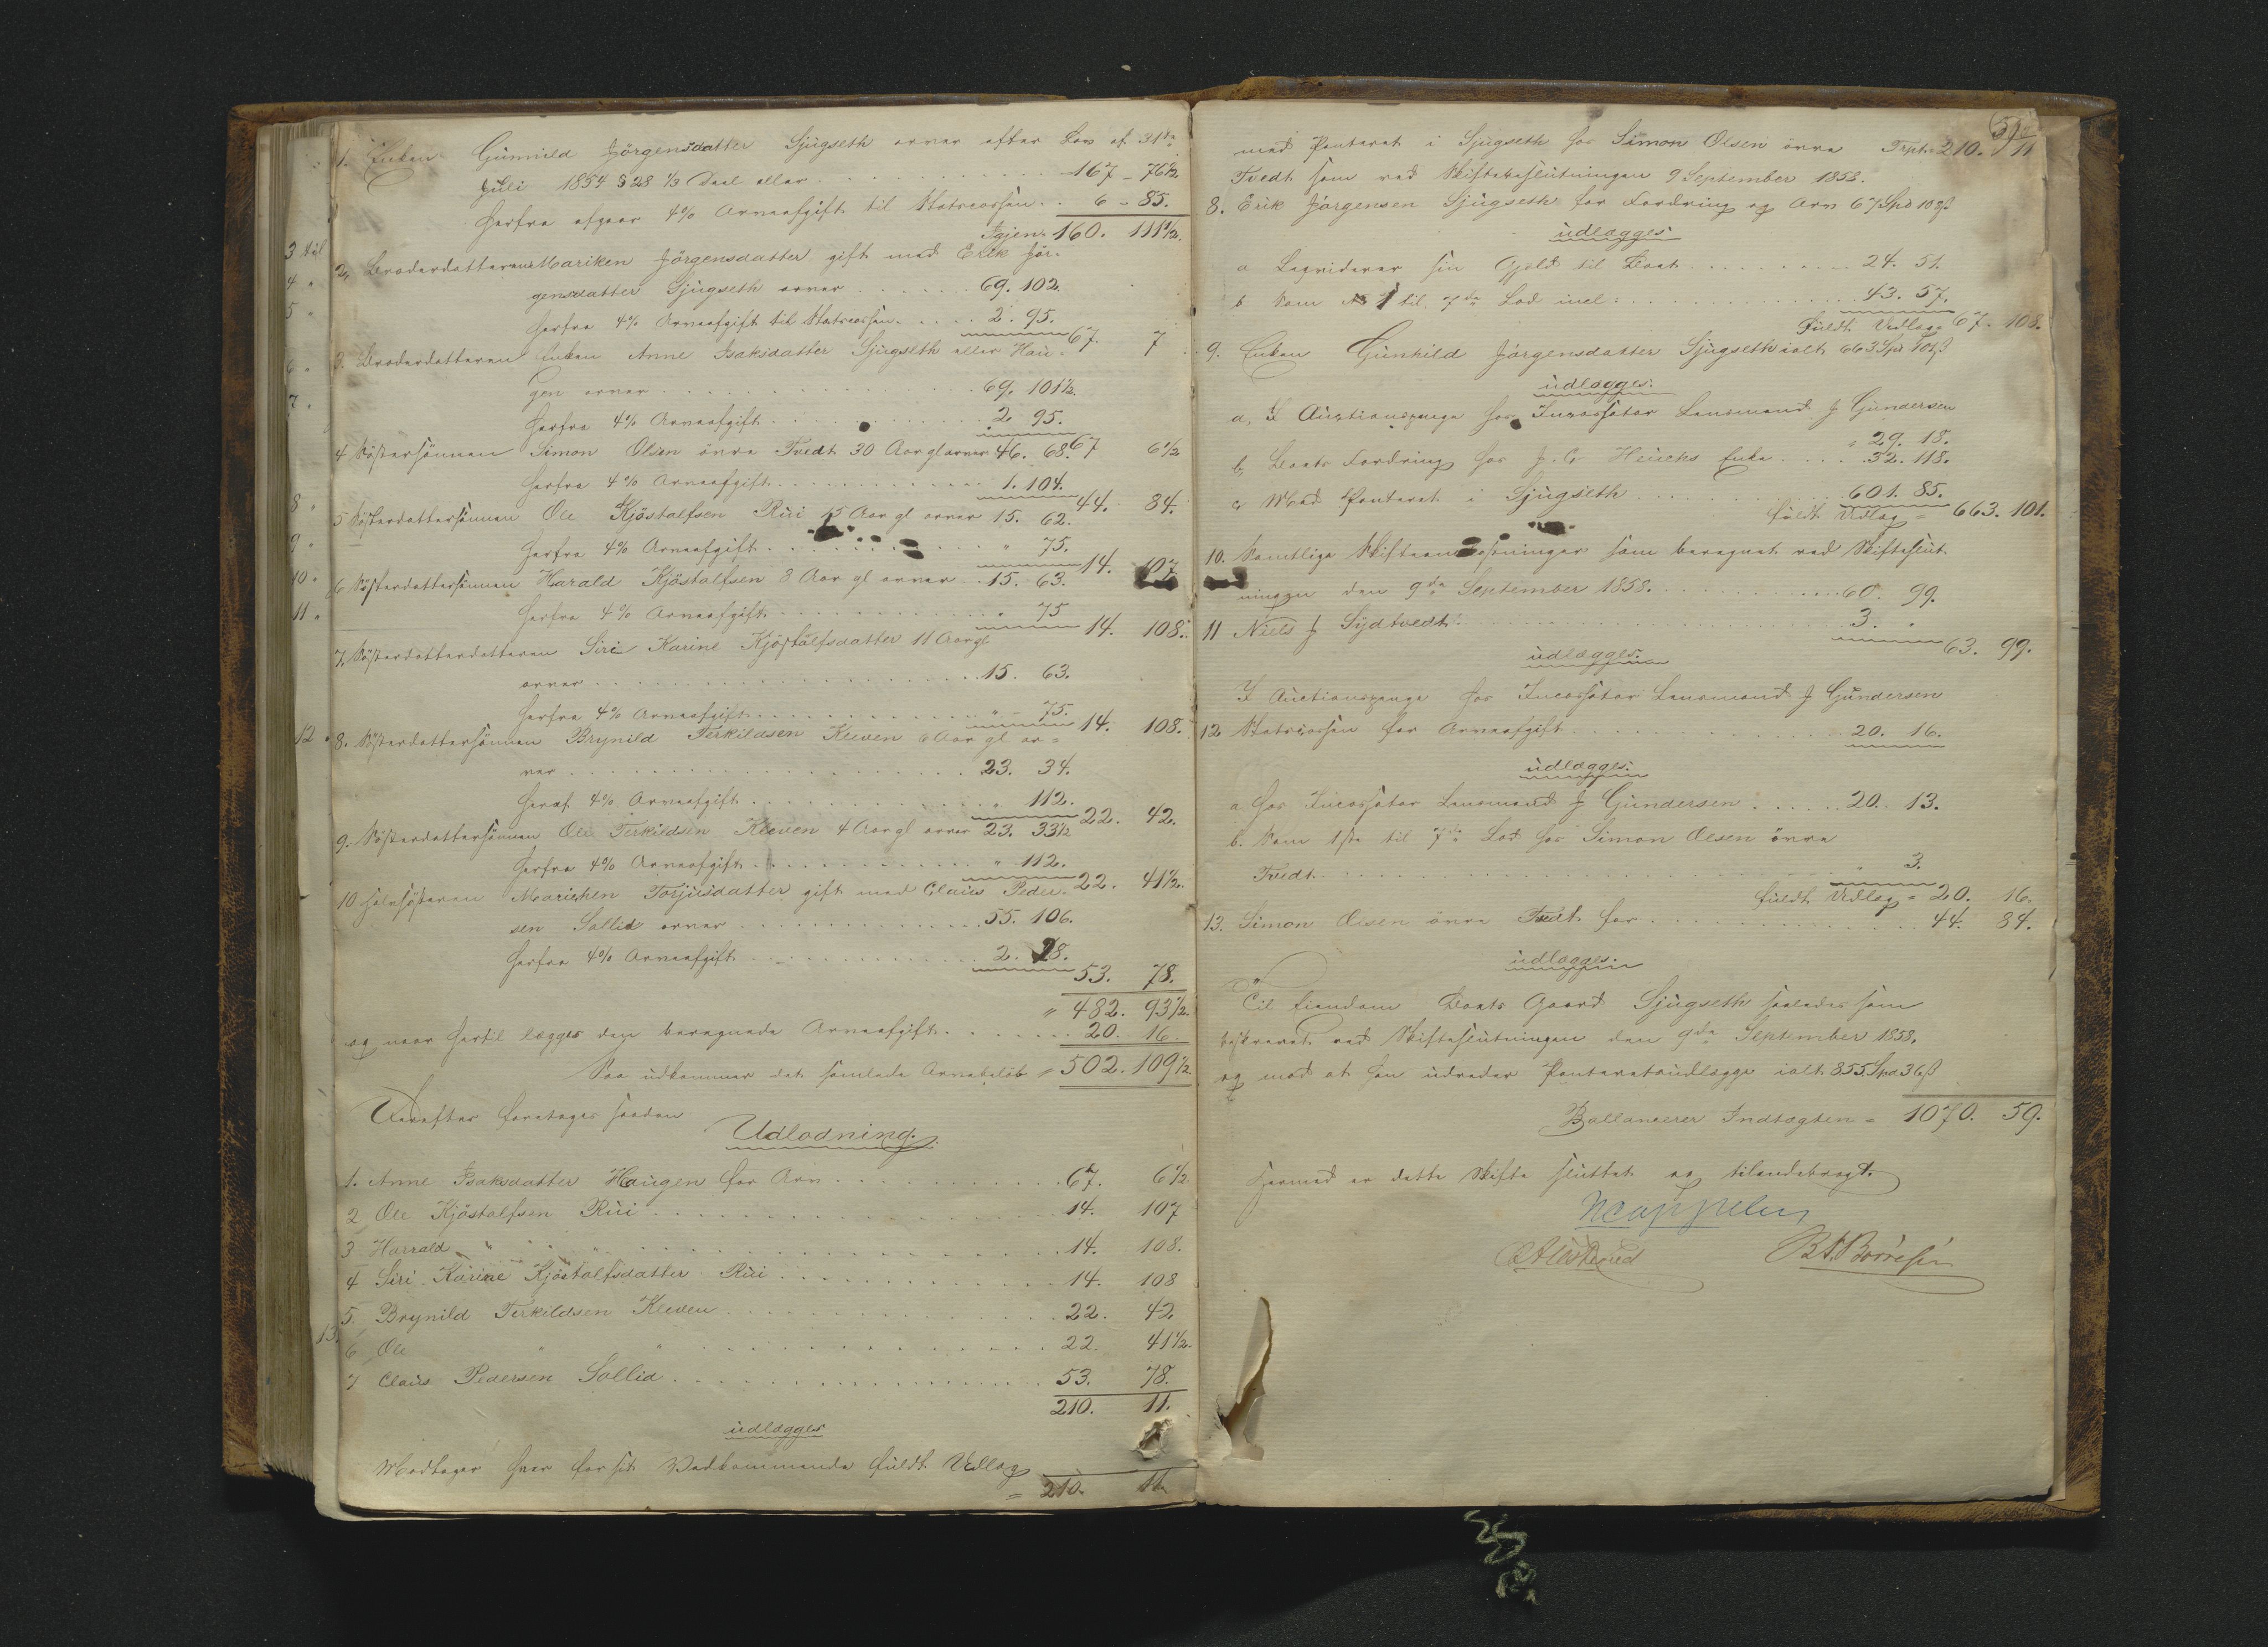 1. Enken Gunnild Jörgensdatter Sjugseth arver efter Lov af 31te
Juli 1854 § 28 1/3 Deel eller 167 - 76 1/2
herfra afgaar 4% Arveafgift til Statscassen 6 - 85.
Igjen 160. 111 1/2.
2, Broderdatteren Mariken Jörgensdatter gift med Erik Jör-
gensdatter Sjugseth arver 69. 102.
herfra 4% Arveafgift til Statscassen 2. 95.
67. 7
3. Broderdatteren Enken Anne Isaksdatter Sjugseth eller Hau-
gen arver 69. 101 1/2.
herfra 4% Arveafgift 2. 95.
67 6 1/2
4 Söstersönnen Simon Olsen övre Tvedt 30 Aar gl arver 46. 68.
herfra 4% Arveafgift 1. 104.
44. 84.
5 Sösterdattersönnen Ole Kjöstolfsen Rui 15 Aar gl arver 15. 62.
herfra 4% Arveafgift " 75.
14. 107
6 Sösterdattersönnen Harald Kjöstolfsen 8 Aar gl arver 15. 63.
herfra 4% Arveafgift " 75
14. 108.
7, Sösterdatterdatteren Siri Karine Kjöstolfsdatter 11 Aar gl
arver 15. 63.
herfra 4% Arveafgift " - 75.
14. 108.
8. Sösterdattersönnen Brynild Terkildsen Kleven 6 Aar gl ar=
ver 23. 34.
heraf 4% Arveafgift " 112.
22. 42.
9. Sösterdattersönnen Ole Terkildsen Kleven 4 Aar gl arver 23. 33 1/2
herfra 4% Arveafgift " 112.
22. 41 1/2.
10 Halvsösteren Marichen Torjusdatter gift med Claus Peder-
sen Sollid arver 55. 106.
herfra 4% Arveafgift 2. 28.
53. 78.
" 482. 93 1/2.
og naar hertil lægges den beregnede Arveafgift 20. 16.
Saa udkommer det samlede Arvebelöb " 502. 109 1/2
Derefter foretages saadan
Udlodning.
1. Anne Isaksdatter Haugen for Arv 67. 6 1/2
2 Ole Kjöstolfsen Rui 14. 107
3 Harrald " " 14. 108.
4 Siri Karine Kjöstolfsdatter Rui 14. 108
5. Brynild Terkildsen Kleven 22. 42
6 Ole " " 22. 41 1/2.
7 Claus Pedersen Sollid 53. 78.
210. 11.
udlægges
Modtager hver for sit Vedkommende fuldt Udlæg
= 210. 11.
3 til
4 "
5 "
6 "
7 "
8 "
9 "
10 "
11 "
12 "
13.
med Panteret i Sjugseth hos Simon Olsen övre Trspt. 210. 11
Tvedt som ved Skifteslutningen 9 September 1858.
8. Erik Jörgensen Sjugseth for Fordring og Arv 67 Spd 108 ß
udlægges
a Liqviderer sin Gjeld til Boet 24. 51.
b Som No 1 til 7de Lod incl: 43. 57.
fuldt Udlæg = 67. 108.
9. Enken Gunhild Jörgensdatter Sjugseth ialt 663 Spd 101 ß
udlægges:
a, I Auctionspenge hos Incassator Lensmand J Gundersen
" 29. 18.
b, Boets Fordring hos J. C Heuchs Enke 32. 118.
c, Med Panteret i Sjugseth 601. 85.
fuldt Udlæg = 663. 101.
10. Samtlige Skifteomkostninger som beregnet ved Skifteslut
ningen den 9de September 1858. 60. 99.
11 Niels J Sydtvedt 3. "
63. 99.
udlægges:
I Auctionspenge hos Incassator Lensmand J Gundersen
12 Statscassen for Arveafgift 20. 16.
udlægges:
a. hos Incassator Lensmand J Gundersen 20. 13.
b. Som 1ste til 7de Lod hos Simon Olsen övre
Tvedt " 3.
fuldt Udlæg = 20. 16.
13. Simon Olsen övre Tvedt for 44. 84.
udlægges:
Til Eiendom Boets Gaard Sjugseth saaledes som
beskrevet ved Skifteslutningen den 9de September 1858,
og mod at han udreder Panteretsudlægge ialt 855 Spd 36 ß
Ballancerer Indtægten = 1070. 59.
Hermed er dette Skifte sluttet og tilendebragt.
NCappelen
B.T.Börresen